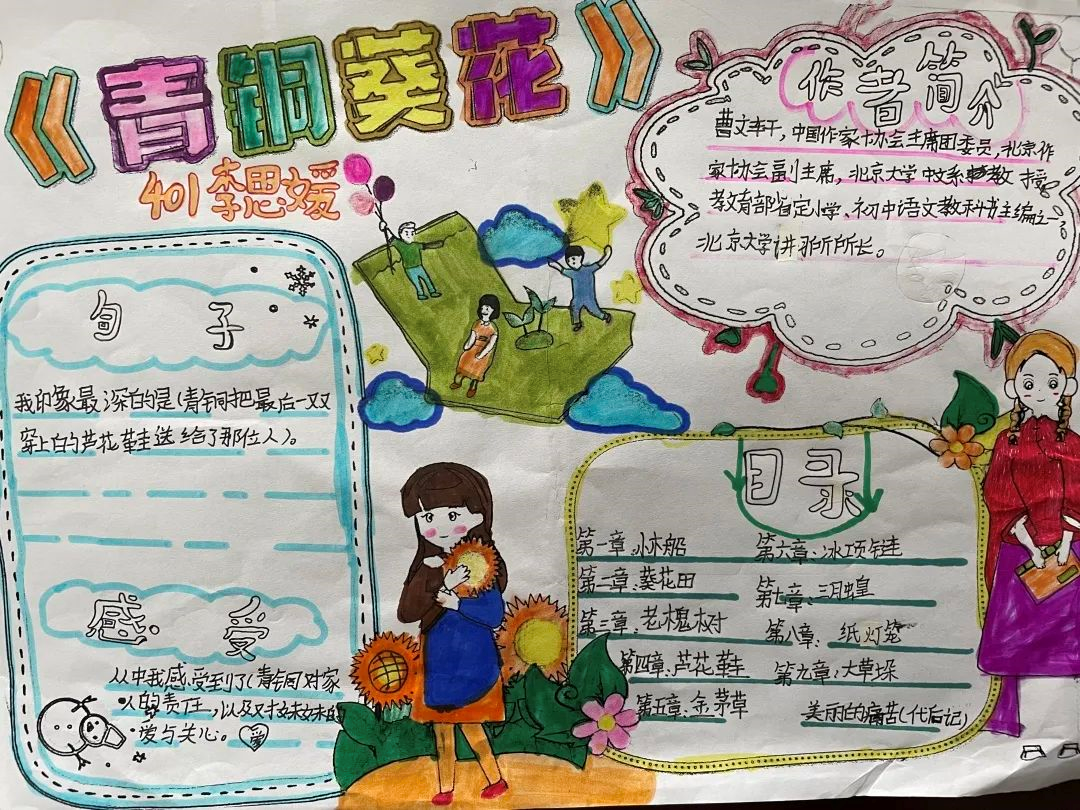 《青铜葵花》
401 李思媛
作者简介
曹文轩，中国作家协会主席团委员，北京作
家协会副主席，北京大学 教授
教育部省定小学、初中语文教科书主编之一，
北京大学讲 所所长。
句子
我印象最深的是（青铜把最后一双
穿上的芦花鞋送给了那位人）。
感受
从中我感受到了（青铜）对家
人的责任，以及对妹妹的
爱与关心。爱
目录
第一章：小木船
第二章：葵花田
第三章：老槐树
第四章：芦花鞋
第五章：金茅草
第六章：冰项链
第七章：三月蝗
第八章：纸灯笼
第九章：大草垛
美丽的痛苦（代后记）